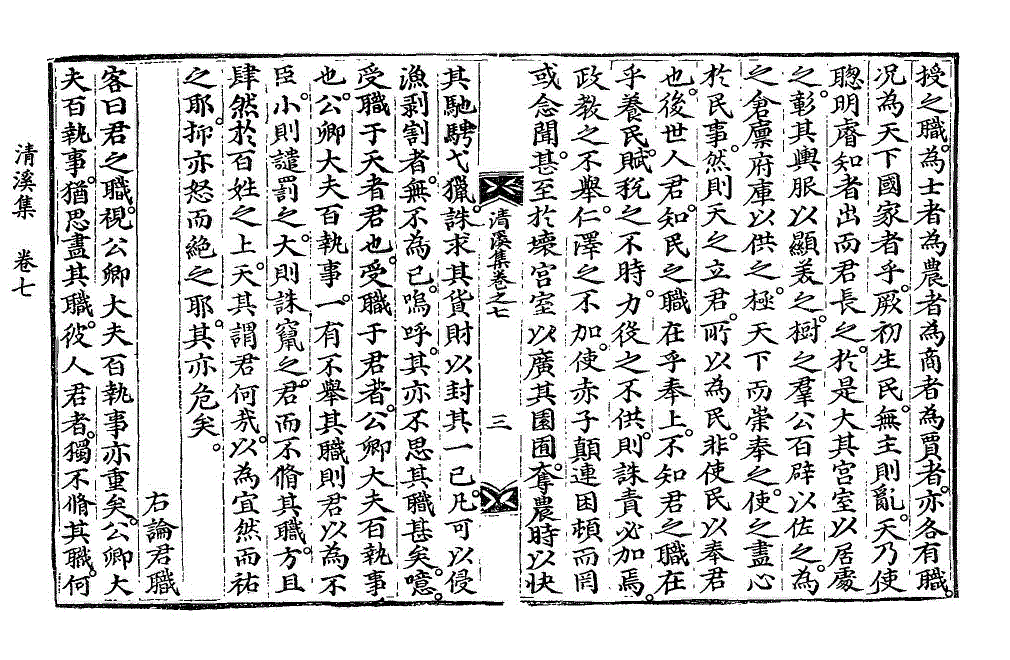 授之職。為士者為農者為商者為賈者。亦各有職。
况為天下國家者乎。厥初生民。無主則亂。天乃使
聰明睿知者出而君長之。於是大其宮室以居處
之。彰其輿服以顯美之。樹之羣公百辟以佐之。為
之倉廩府庫以供之。極天下而崇奉之。使之盡心
於民事。然則天之立君。所以為民。非使民以奉君
也。後世人君。知民之職在乎奉上。不知君之職在
乎養民。賦稅之不時。力役之不供。則誅責必加焉。
政教之不舉。仁澤之不加。使赤子顛連困頓而罔
或念聞。甚至於壞宮室以廣其園囿。奪農時以快
清溪集卷之七
三
其馳騁弋獵。誅求其貨財以封其一己。凡可以侵
漁剥割者。無不為已。嗚呼。其亦不思其職甚矣。噫。
受職于天者君也。受職于君者。公卿大夫百執事
也。公卿大夫百執事。一有不舉其職則君以為不
臣。小則譴罰之。大則誅竄之。君而不脩其職。方且
肆然於百姓之上。天其謂君何㢤。以為宜然而祐
之耶。抑亦怒而絶之耶。其亦危矣。
右論君職
客曰君之職。視公卿大夫百執事亦重矣。公卿大
夫百執事。猶思盡其職。彼人君者。獨不脩其職。何
清溪集 卷七